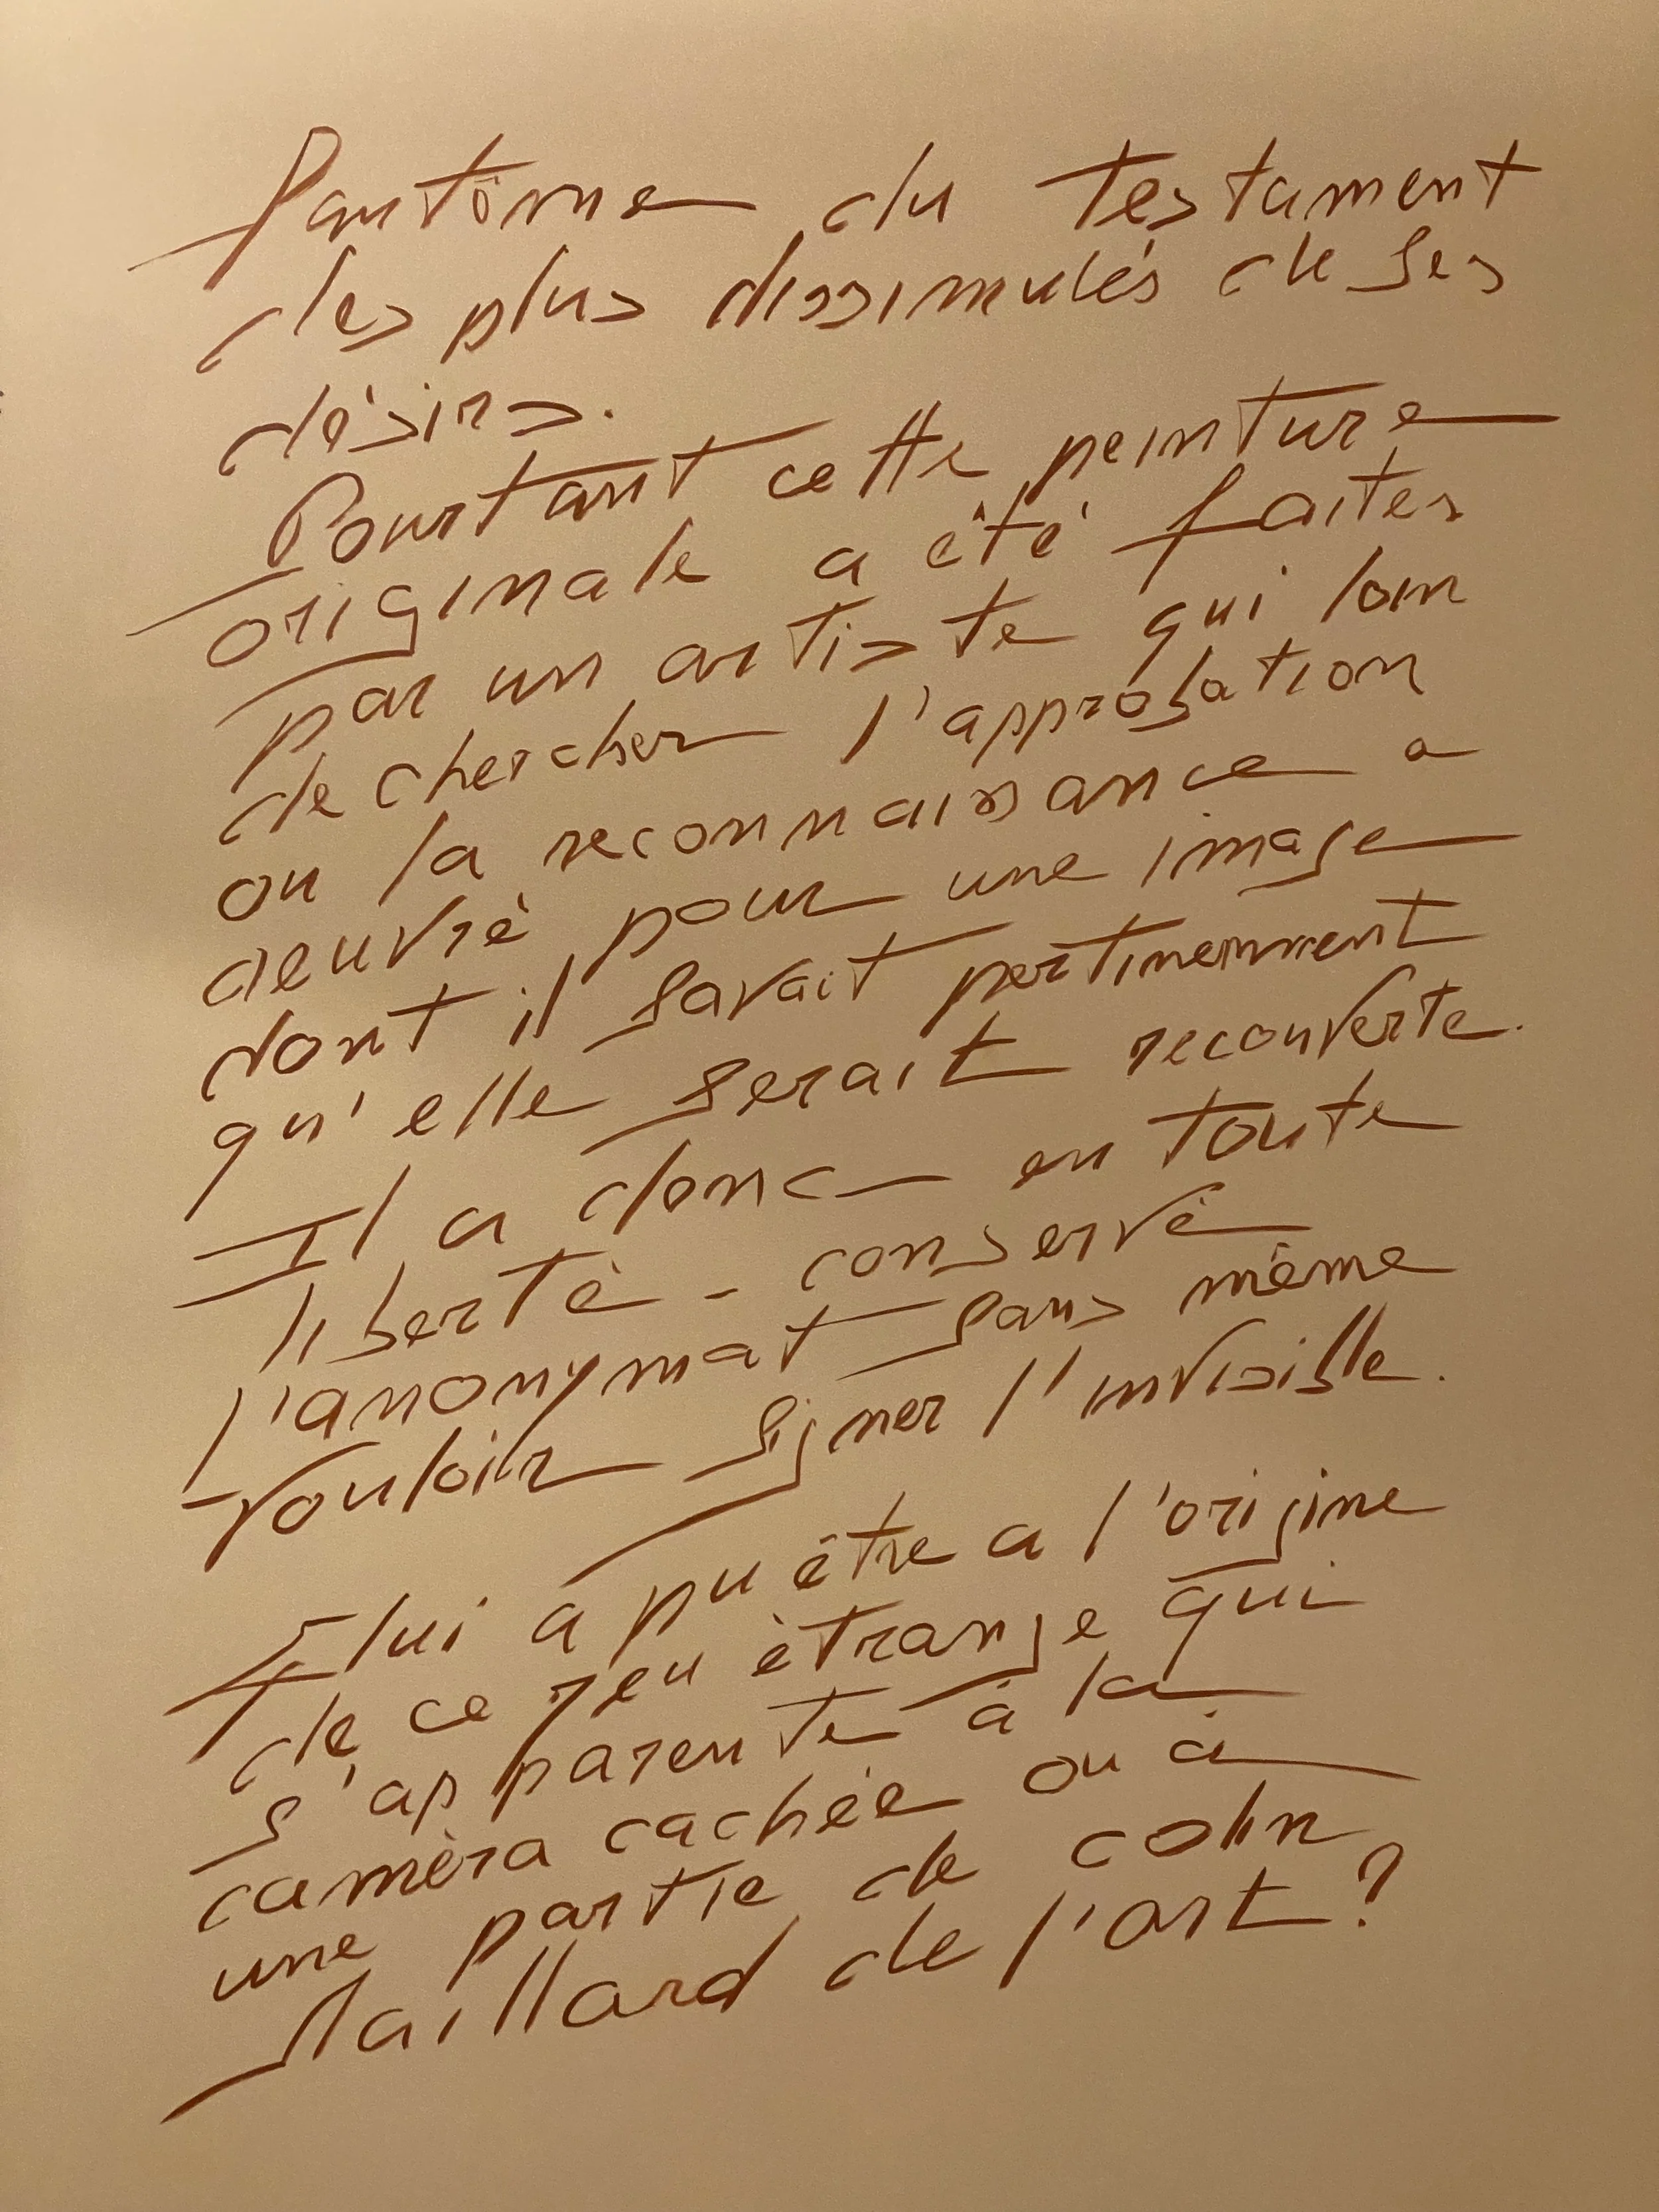 fantôme du testament
des plus dissimulés de ses
désirs.
Pourtant cette peinture
originale a été faites
par un artiste qui loin
de chercher l'approbation
ou la reconnaissance a
oeuvré pour une image
dont il savait pertinemment
qu'elle serait recouverte.
Il a donc en toute
liberté - conservé
l'anonymat sans même
vouloir signer l'invisible.
lui a pu être a l'origine
de ce jeu étrange qui
s'apparente à la
caméra cachée ou à
une partie de colin
Maillard de l'art ?